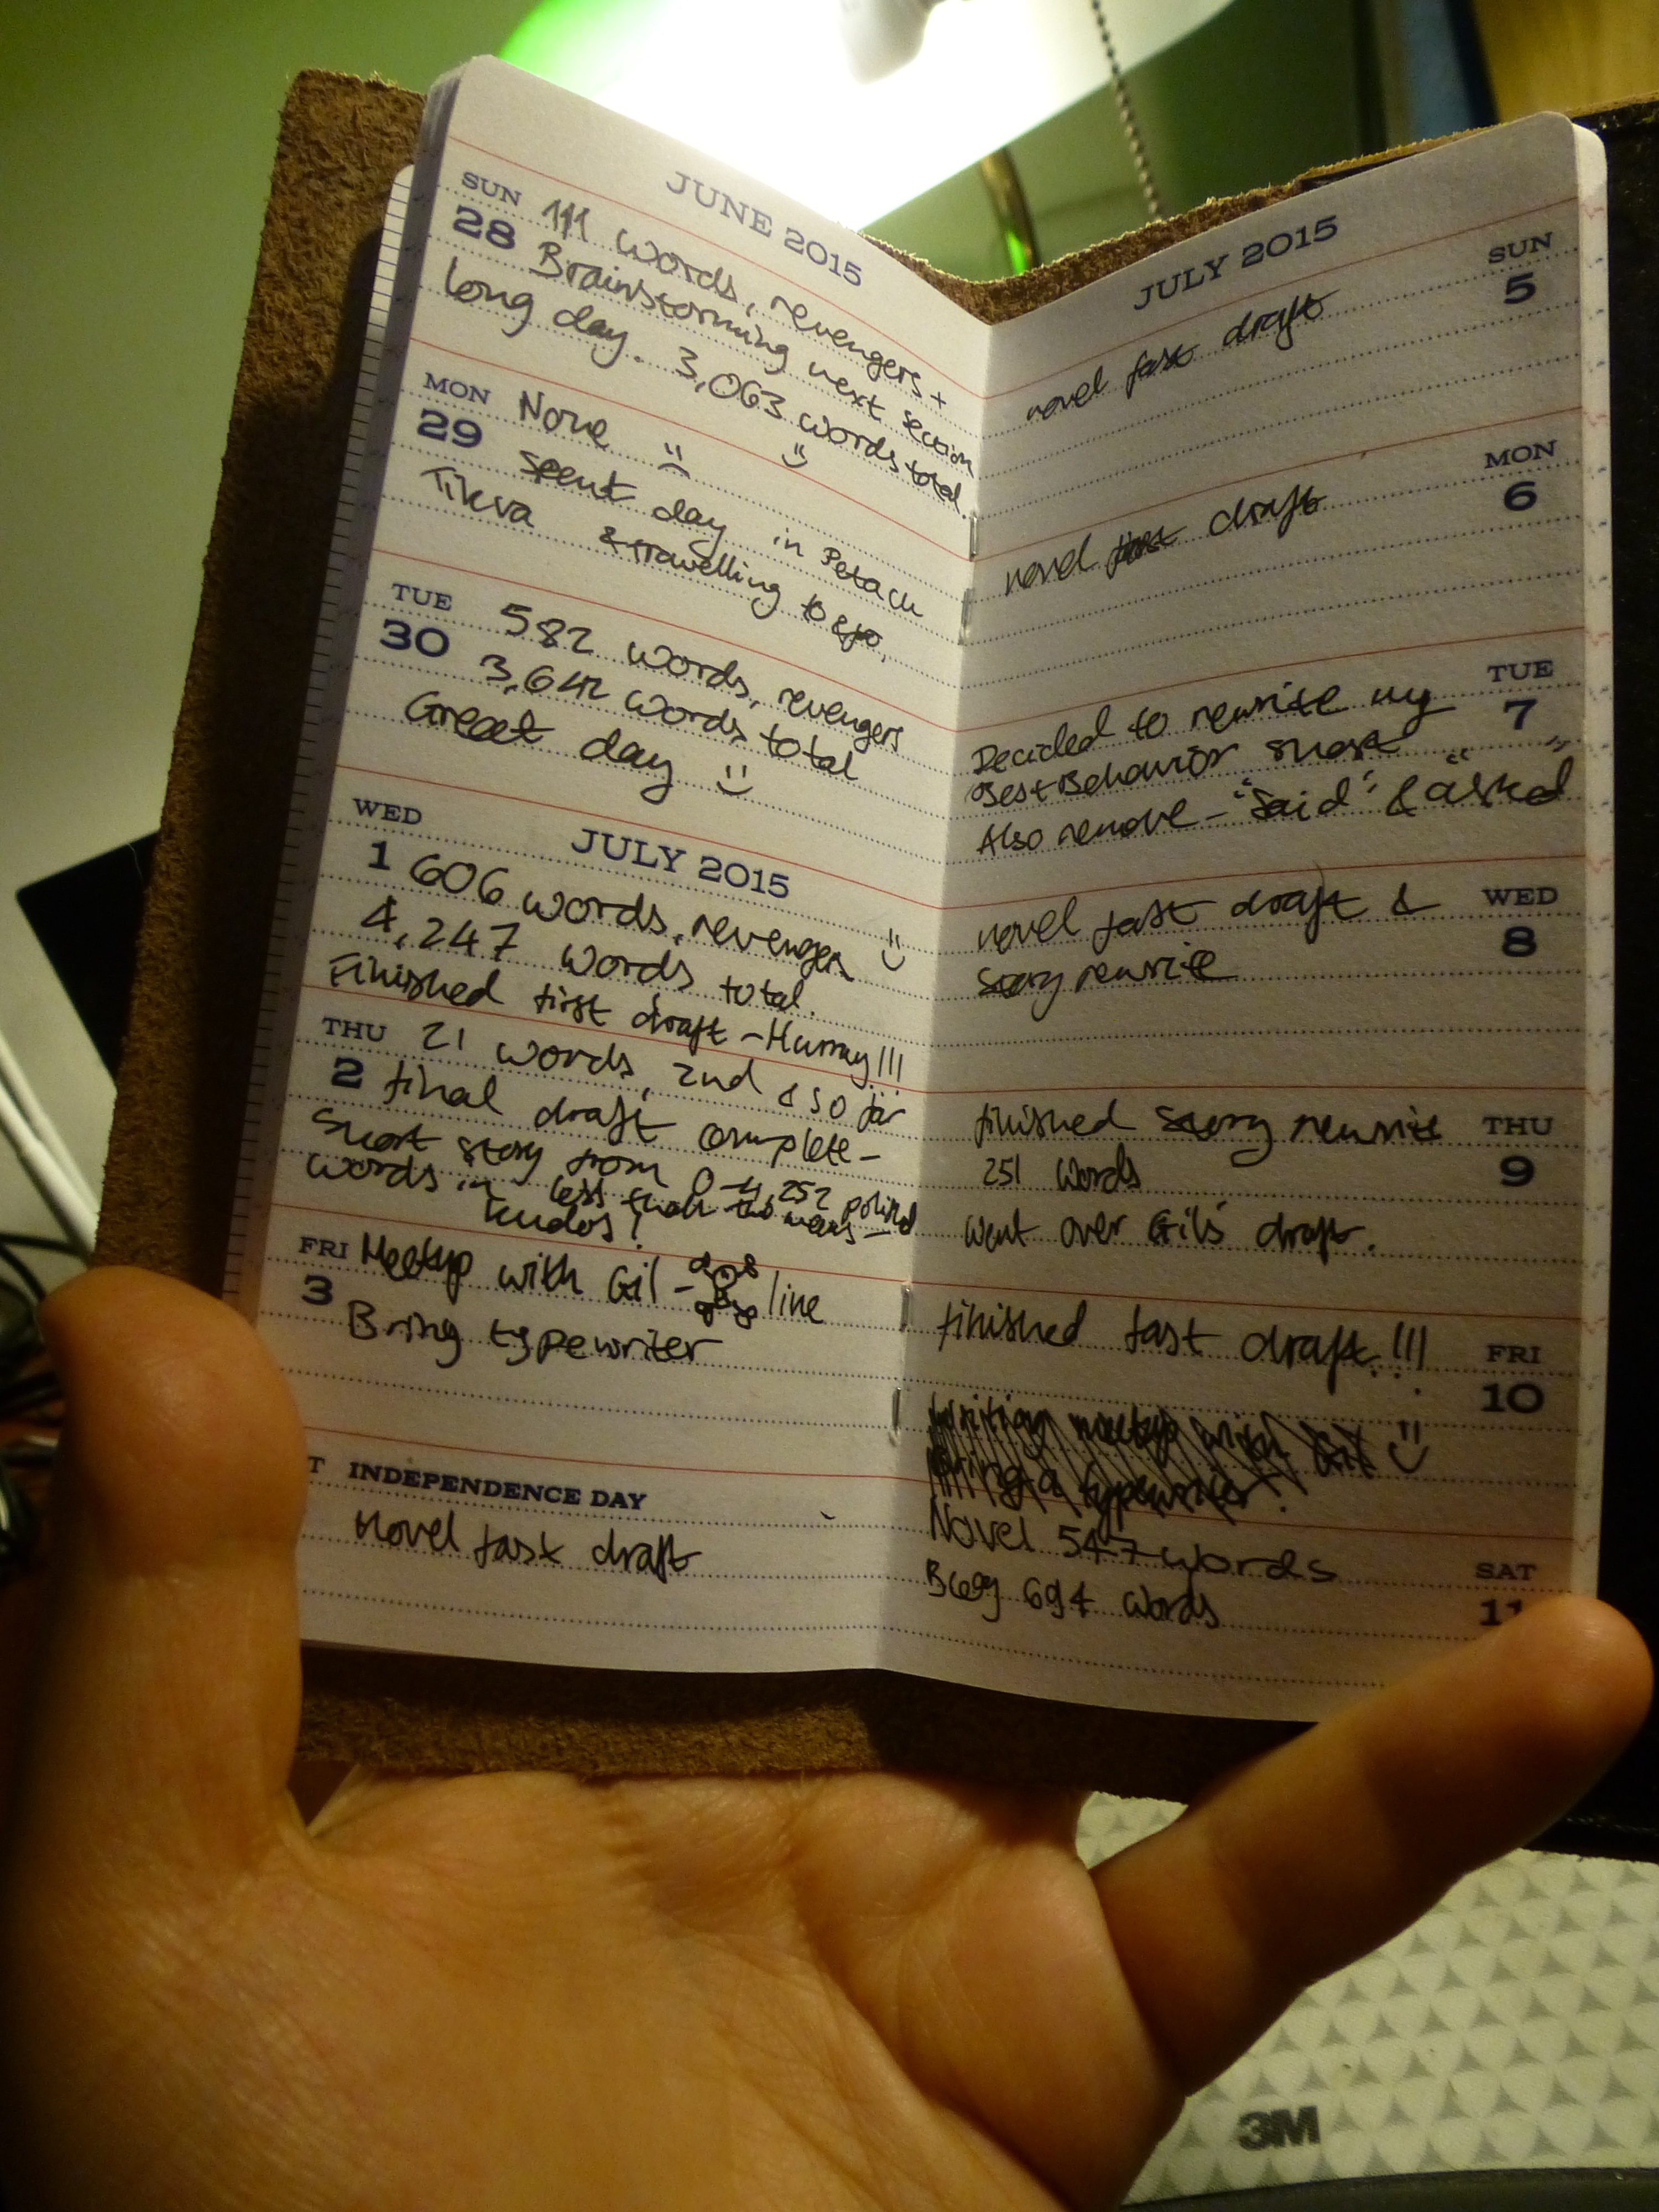 JUNE 2015
SUN 111 words, revengers +
28 Brainstorming next section
long day. 3,063 words total.
MON None
29 Spent day in Petach
Tikva & travelling to &
TUE 582 words, revengers
30 3,642 words total
Great day
WED JULY 2015
1 606 words, revengers
4,247 words total.
Finished first draft - Hurray!!!
THU 21 words, 2nd & so far
2 final draft complete -
Short story from 0-4,252 polished
words in less than two
Kudos!
FRI Meetup with Gil - line
3 Bring typewriter
T INDEPENDENCE DAY
Novel fast draft
JULY 2015
SUN
5
novel fast draft
MON
6
novel fast draft
TUE
7
Decided to rewrite my
Best Behavior
Also remove - "said" & "asked"
WED
8
novel fast draft &
story rewrite
finished story rewrite THU
251 words 9
Went over Gil's draft.
finished fast draft!!! FRI
10
Writing meetup with Gil
Bring a typewriter.
Novel 547 words
SAT
Blog 694 words 11
3M